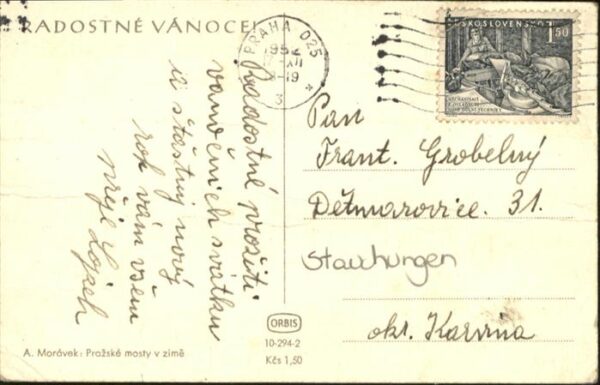 RADOSTNÉ VÁNOCE!
PRAHA 025
1952
XII
-19
3
ČESKOSLOVENSKO
1,50
Radostné prožití
vánočních svátků
a šťastný nový
rok vám všem
přeje
Pan
Frant. Grobelný
Dětmarovice. 31.
Stauchungen
okr. Karviná
ORBIS
10-294-2
Kčs 1,50
A. Morávek: Pražské mosty v zimě